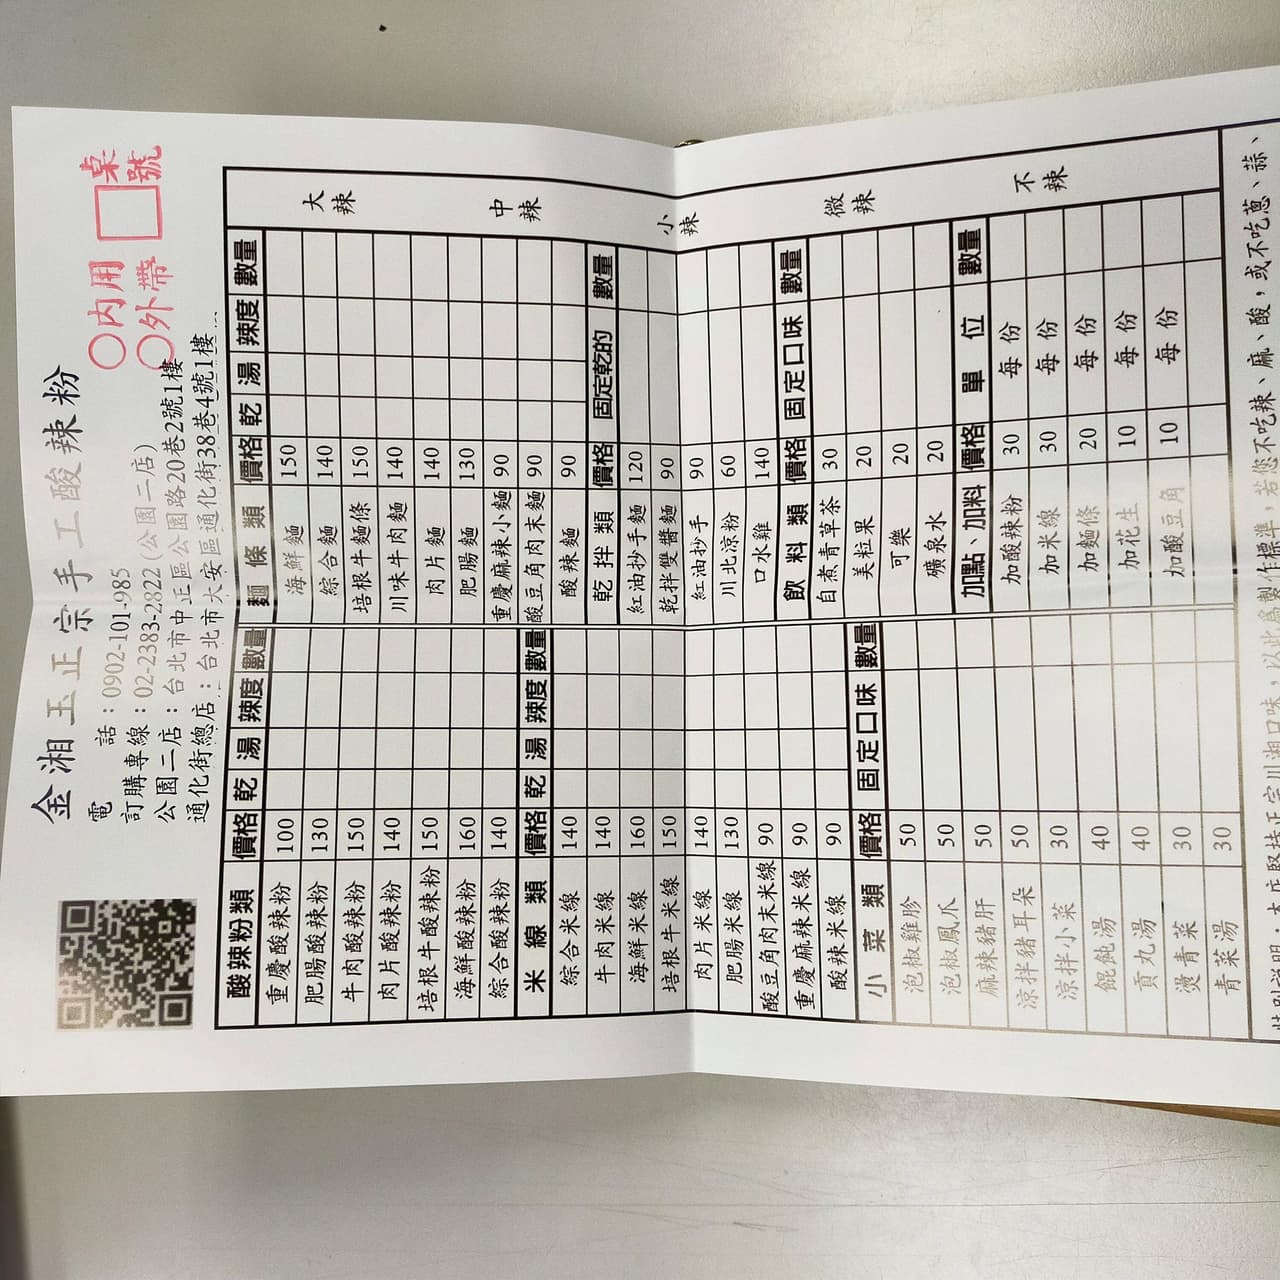 金湘玉正宗手工酸辣粉
電話：0902-101-985
訂購專線：02-2383-2822 (公園二店)
公園二店：台北市中正區公園路20巷2號1樓
通化街總店：台北市大安區通化街38巷4號1樓
○內用
○外帶
桌號
酸辣粉類 價格 乾 湯 辣度 數量
重慶酸辣粉 100
肥腸酸辣粉 130
牛肉酸辣粉 150
肉片酸辣粉 140
培根牛酸辣粉 150
海鮮酸辣粉 160
綜合酸辣粉 140
米線類 價格 乾 湯 辣度 數量
綜合米線 140
牛肉米線 140
海鮮米線 160
培根牛米線 150
肉片米線 140
肥腸米線 130
酸豆角肉末米線 90
重慶麻辣米線 90
酸辣米線 90
小菜類 價格 固定口味 數量
泡椒雞胗 50
泡椒鳳爪 50
麻辣豬肝 50
涼拌豬耳朵 50
涼拌小菜 30
餛飩湯 40
貢丸湯 40
燙青菜 30
青菜湯 30
麵條類 價格 乾 湯 辣度 數量
海鮮麵 150
綜合麵 140
培根牛麵條 150
川味牛肉麵 140
肉片麵 140
肥腸麵 130
重慶麻辣小麵 90
酸豆角肉末麵 90
酸辣麵 90
乾拌類 價格 固定乾的 數量
紅油抄手麵 120
乾拌雙醬麵 90
紅油抄手 90
川北涼粉 60
口水雞 140
飲料類 價格 固定口味 數量
自煮青草茶 30
美粒果 20
可樂 20
礦泉水 20
加點、加料 價格 單位 數量
加酸辣粉 30 每份
加米線 30 每份
加麵條 20 每份
加花生 10 每份
加酸豆角 10 每份
大辣
中辣
小辣
微辣
不辣
特別說明：本店堅持正宗川湘口味，以此為製作標準，若您不吃辣、麻、酸，或不吃蔥、蒜、